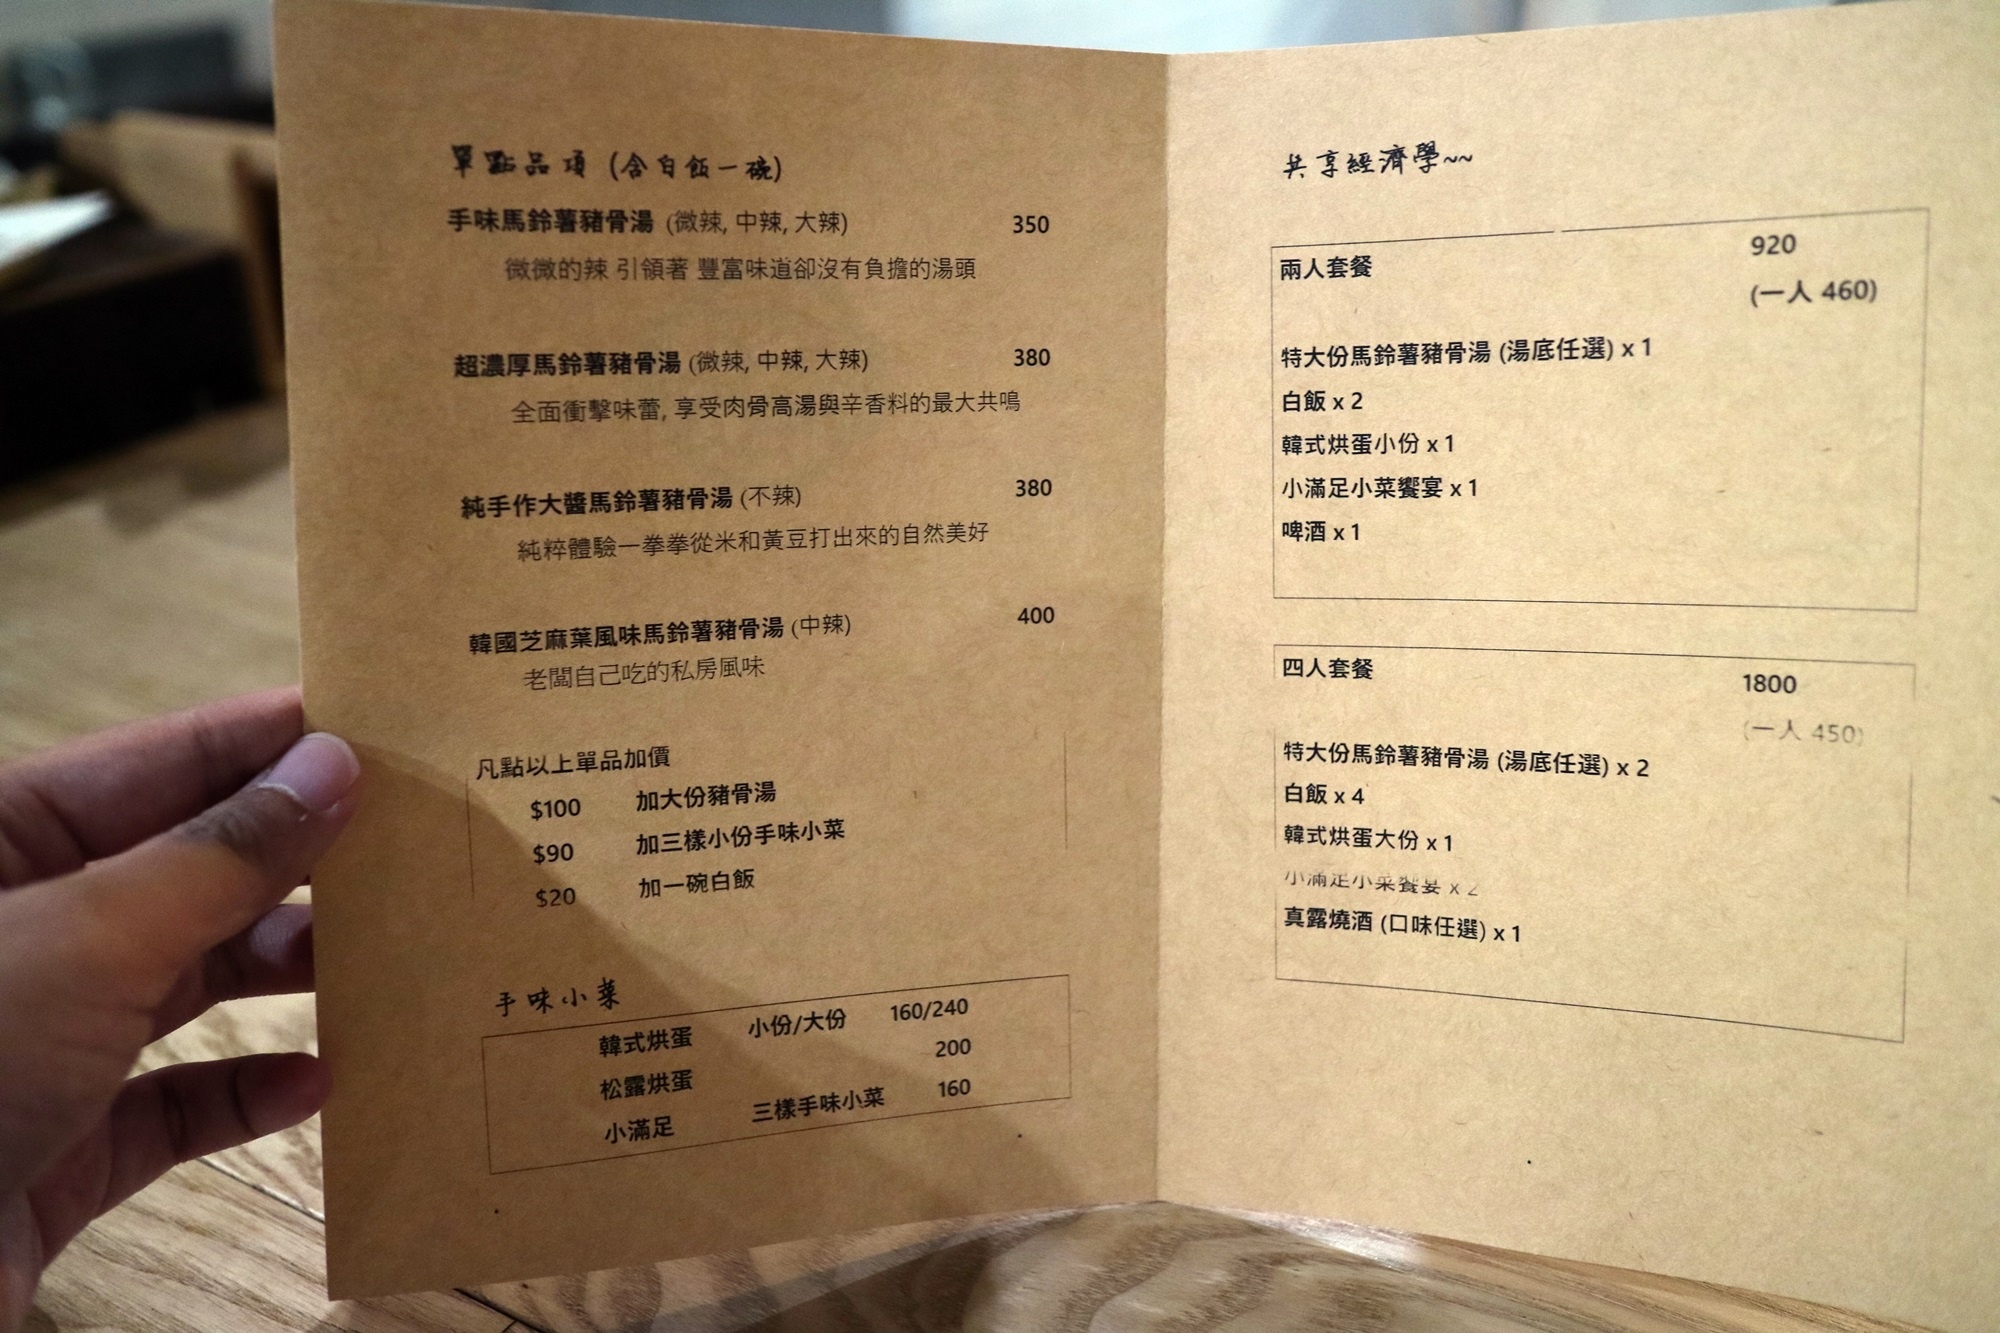 單點品項 (含白飯一碗)
手味馬鈴薯豬骨湯 (微辣, 中辣, 大辣) 350
微微的辣 引領著 豐富味道卻沒有負擔的湯頭
超濃厚馬鈴薯豬骨湯 (微辣, 中辣, 大辣) 380
全面衝擊味蕾, 享受肉骨高湯與辛香料的最大共鳴
純手作大醬馬鈴薯豬骨湯 (不辣) 380
純粹體驗一拳拳從米和黃豆打出來的自然美好
韓國芝麻葉風味馬鈴薯豬骨湯 (中辣) 400
老闆自己吃的私房風味
凡點以上單品加價
$100 加大份豬骨湯
$90 加三樣小份手味小菜
$20 加一碗白飯
手味小菜
韓式烘蛋 小份/大份 160/240
松露烘蛋 200
小滿足 三樣手味小菜 160
共享經濟學~~
兩人套餐 920
(一人 460)
特大份馬鈴薯豬骨湯 (湯底任選) x 1
白飯 x 2
韓式烘蛋小份 x 1
小滿足小菜饗宴 x 1
啤酒 x 1
四人套餐 1800
(一人 450)
特大份馬鈴薯豬骨湯 (湯底任選) x 2
白飯 x 4
韓式烘蛋大份 x 1
小滿足小菜饗宴 x 2
真露燒酒 (口味任選) x 1